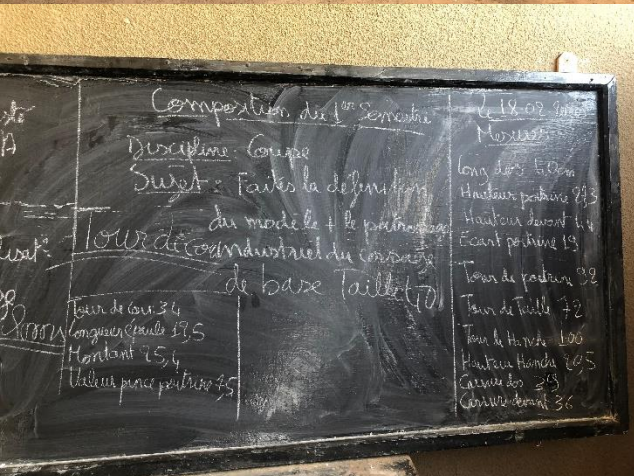 Composition du 1er Semestre
Discipline : Coupe
Sujet : Faites la définition
du modèle + le patronage
industriel du corsage
de base Taille 40
Tour de cou 34
Longueur épaule 12,5
Montant 25,4
Valeur pince poitrine 7,5
le 18-02
Mesures
Long dos 40cm
Hauteur poitrine
Hauteur devant 44
Ecart poitrine 19
Tour de poitrine 92
Tour de Taille 72
Tour de Hanche 100
Hauteur Hanche
Carrure dos
Carrure devant 36